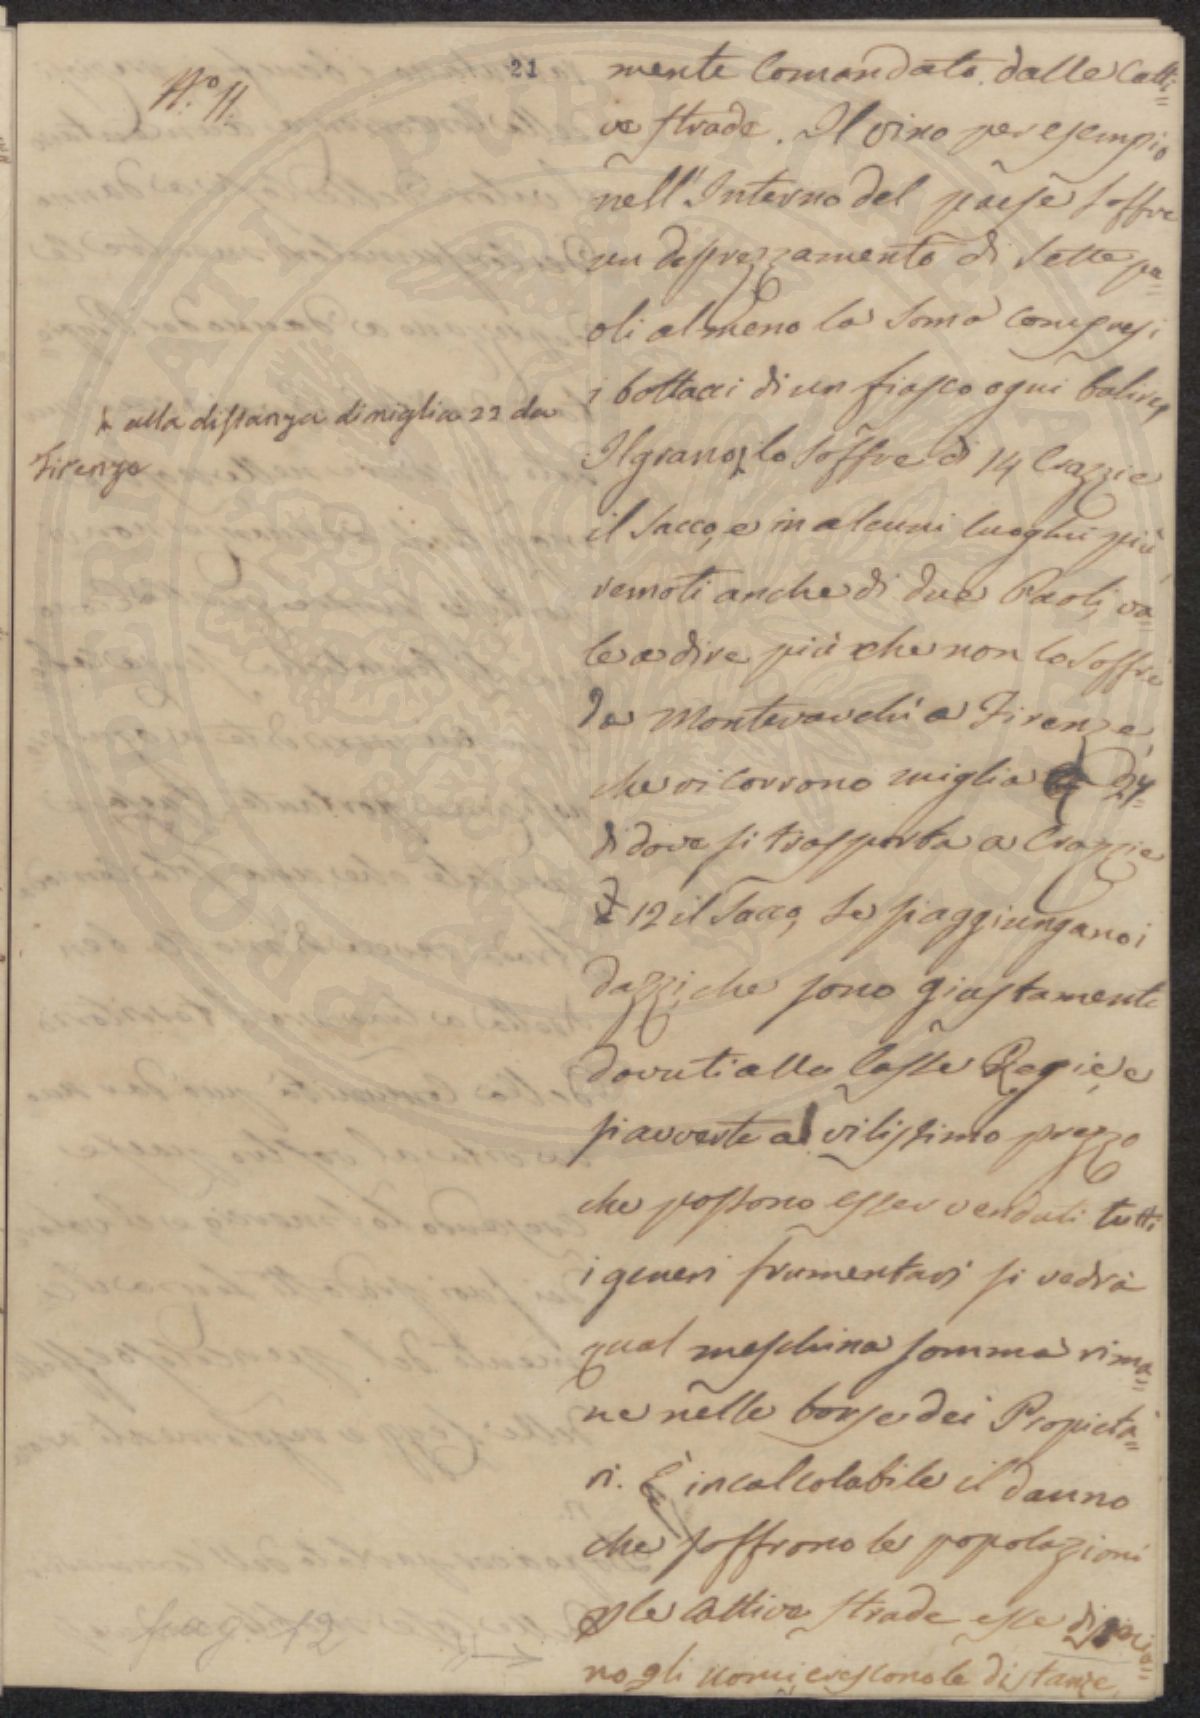 N.° 11.
21
mente comandato dalle catti=
ve strade. Il vino per esempio
nell'Interno del paese soffre
un disprezzamento di sette pa=
oli almeno la soma compresi
i bottacci di un fiasco ogni
Il grano lo soffre di 14 Crazzie
il sacco, e in alcuni luoghi più
remoti anche di due Paoli, va=
le a dire più che non lo soffre
da Montevarchi a Firenze,
che vi corrono miglia 24=
di dove si trasporta a Crazzie
12 il sacco, se si aggiungano i
dazzi, che sono giustamente
dovuti alla Casse Regie, e
si avverte al vilissimo prezzo
che possono esser venduti tutti
i generi frumentarj si vedrà
qual meschina somma rima=
ne nelle borse dei Propietà=
ri. È incalcolabile il danno
che soffrono le popolazioni
le cattive strade esse
no gli uomi, crescono le distanze,
alla distanza di miglia 22 da
Firenze